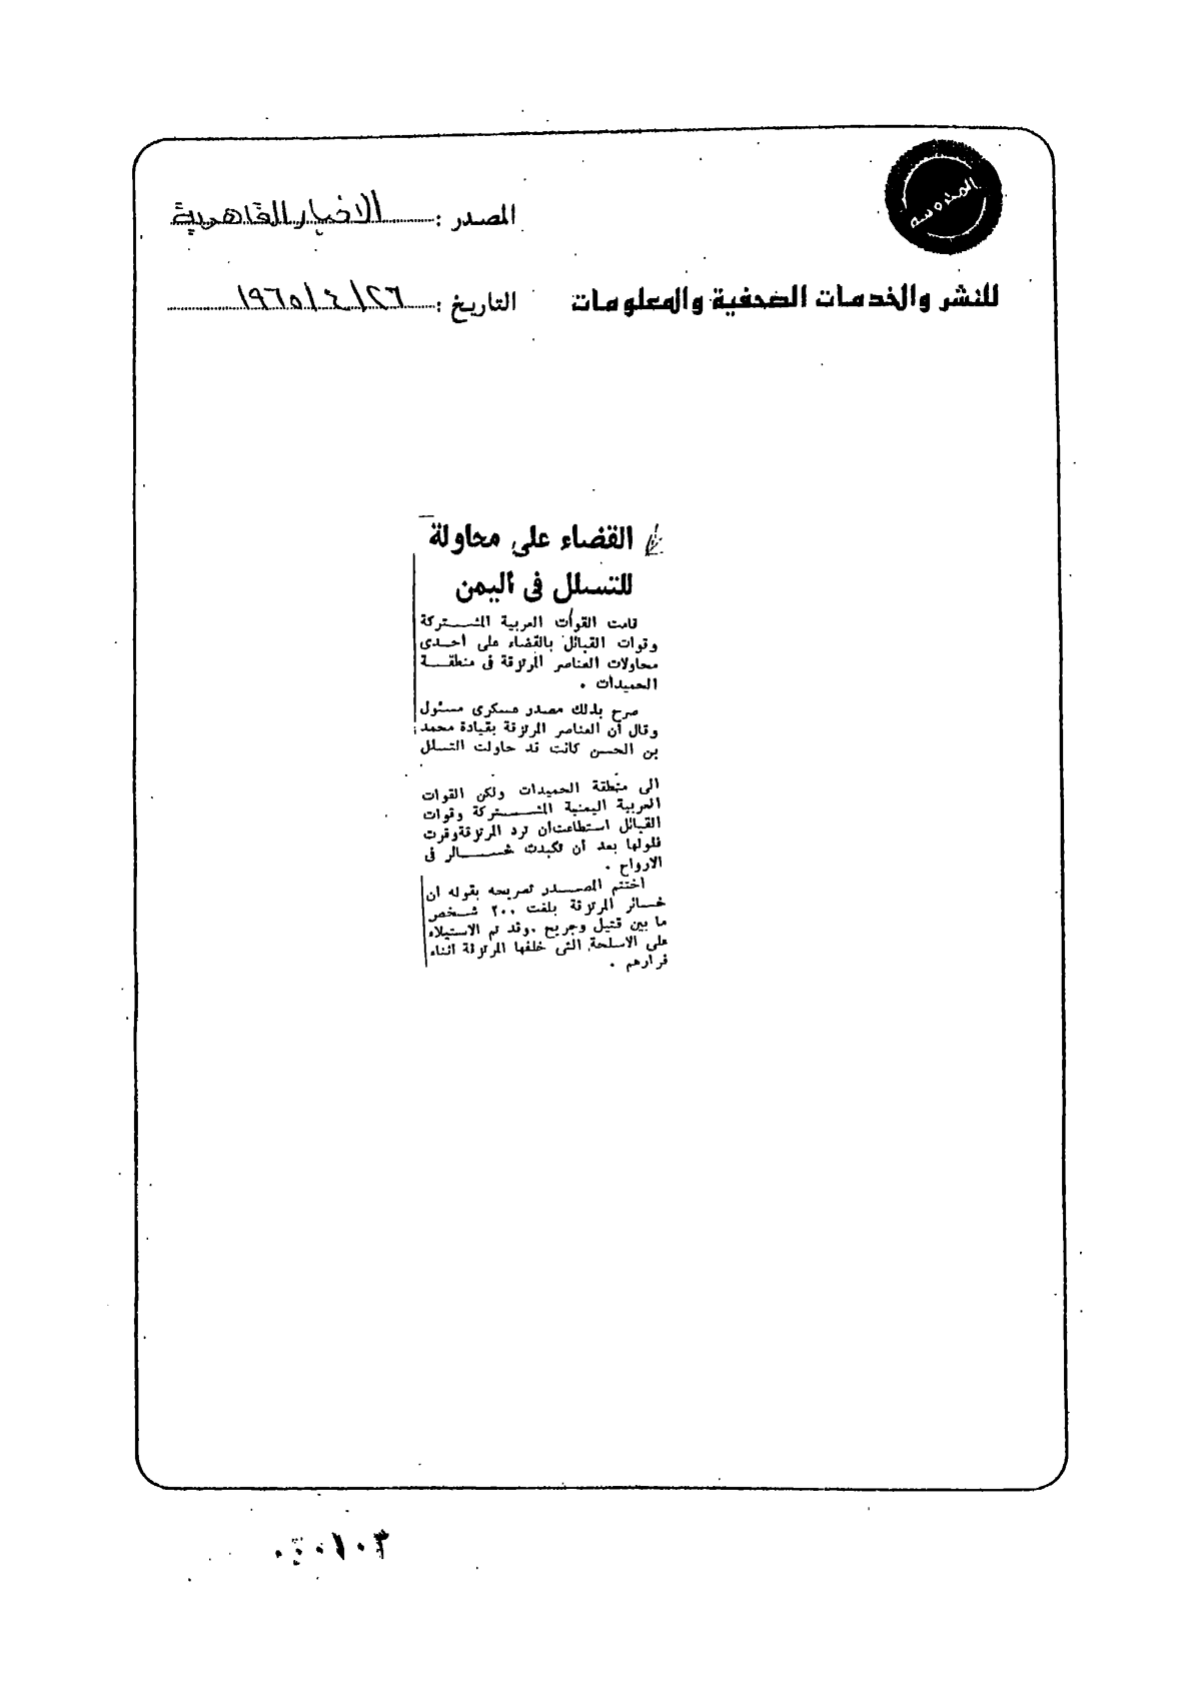 المدوسه
المصدر : الاخبار القاهرية
للنشر والخدمات الصحفية والمعلومات
التاريخ : ٢٦/٤/١٩٦٥
القضاء على محاولة
للتسلل فى اليمن
قامت القوات العربية المشتركة
وقوات القبائل بالقضاء على احدى
محاولات العناصر المرتزقة فى منطقة
الحميدات .
صرح بذلك مصدر عسكرى مسئول
وقال أن العناصر المرتزقة بقيادة محمد
بن الحسن كانت قد حاولت التسلل
الى منطقة الحميدات ولكن القوات
العربية اليمنية المشتركة وقوات
القبائل استطاعت أن ترد المرتزقة وفرت
فلولها بعد أن تكبدت خسائر فى
الارواح .
اختتم المصدر تصريحه بقوله ان
خسائر المرتزقة بلغت ٢٠٠ شخص
ما بين قتيل وجريح . وقد تم الاستيلاء
على الاسلحة التى خلفها المرتزقة اثناء
فرارهم .